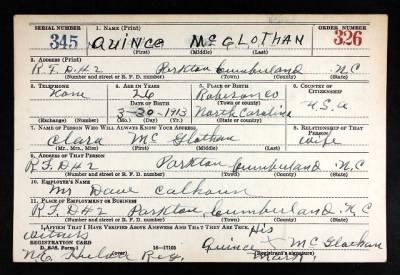 SERIAL NUMBER 1. NAME (Print) ORDER NUMBER
345 QUINCE McGLOTHAN 326
(First) (Middle) (Last)
2. ADDRESS (Print)
R.F.D #2 Parkton Cumberland N.C
(Number and street or R. F. D. number) (Town) (County) (State)
3. TELEPHONE 4. AGE IN YEARS 5. PLACE OF BIRTH 6. COUNTRY OF CITIZENSHIP
None 26 Robeson Co
DATE OF BIRTH (Town) (County)
3-30-1913 North Carolina U.S.A
(Exchange) (Number) (Mo.) (Day) (Yr.) (State or country)
7. NAME OF PERSON WHO WILL ALWAYS KNOW YOUR ADDRESS 8. RELATIONSHIP OF THAT PERSON
Clara McGlothan wife
(Mr., Mrs., Miss) (First) (Middle) (Last)
9. ADDRESS OF THAT PERSON
R.F.D #2 Parkton Cumberland N.C
(Number and street or R. F. D. number) (Town) (County) (State)
10. EMPLOYER'S NAME
Mr Dave Calhoun
11. PLACE OF EMPLOYMENT OR BUSINESS
R.F.D #2 Parkton, Cumberland N.C
(Number and street or R. F. D. number) (Town) (County) (State)
I AFFIRM THAT I HAVE VERIFIED ABOVE ANSWERS AND THAT THEY ARE TRUE. His
Witness
REGISTRATION CARD Quince X McGlothan
D. S. S. Form 1 (over) 16—17105 Mark (Registrant's signature)
Reg.